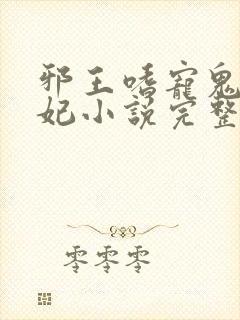 邪王嗜寵鬼
妃小説完整
零零零